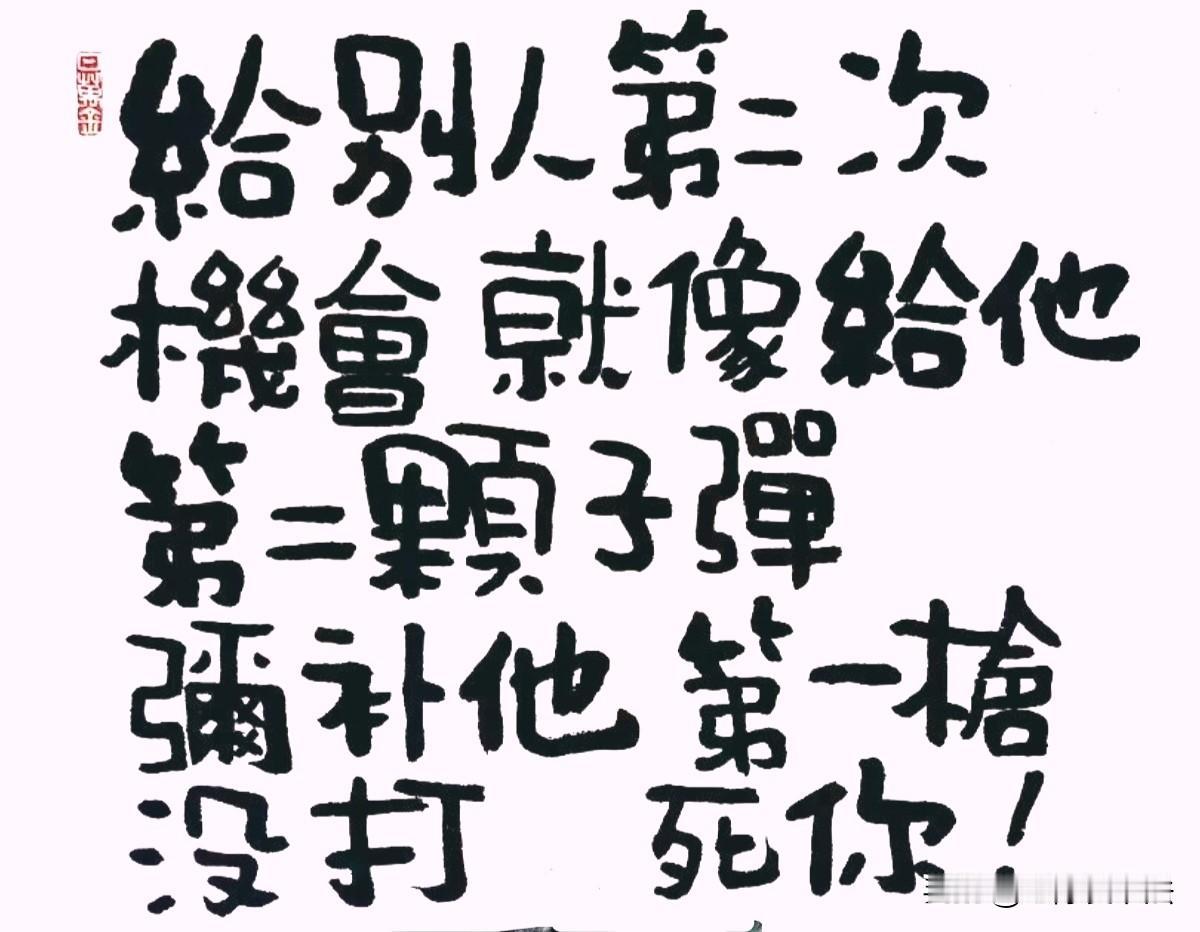 給别人第二次
機會 就像給他
第二顆子彈
彌补他 第一槍
没打 死你！